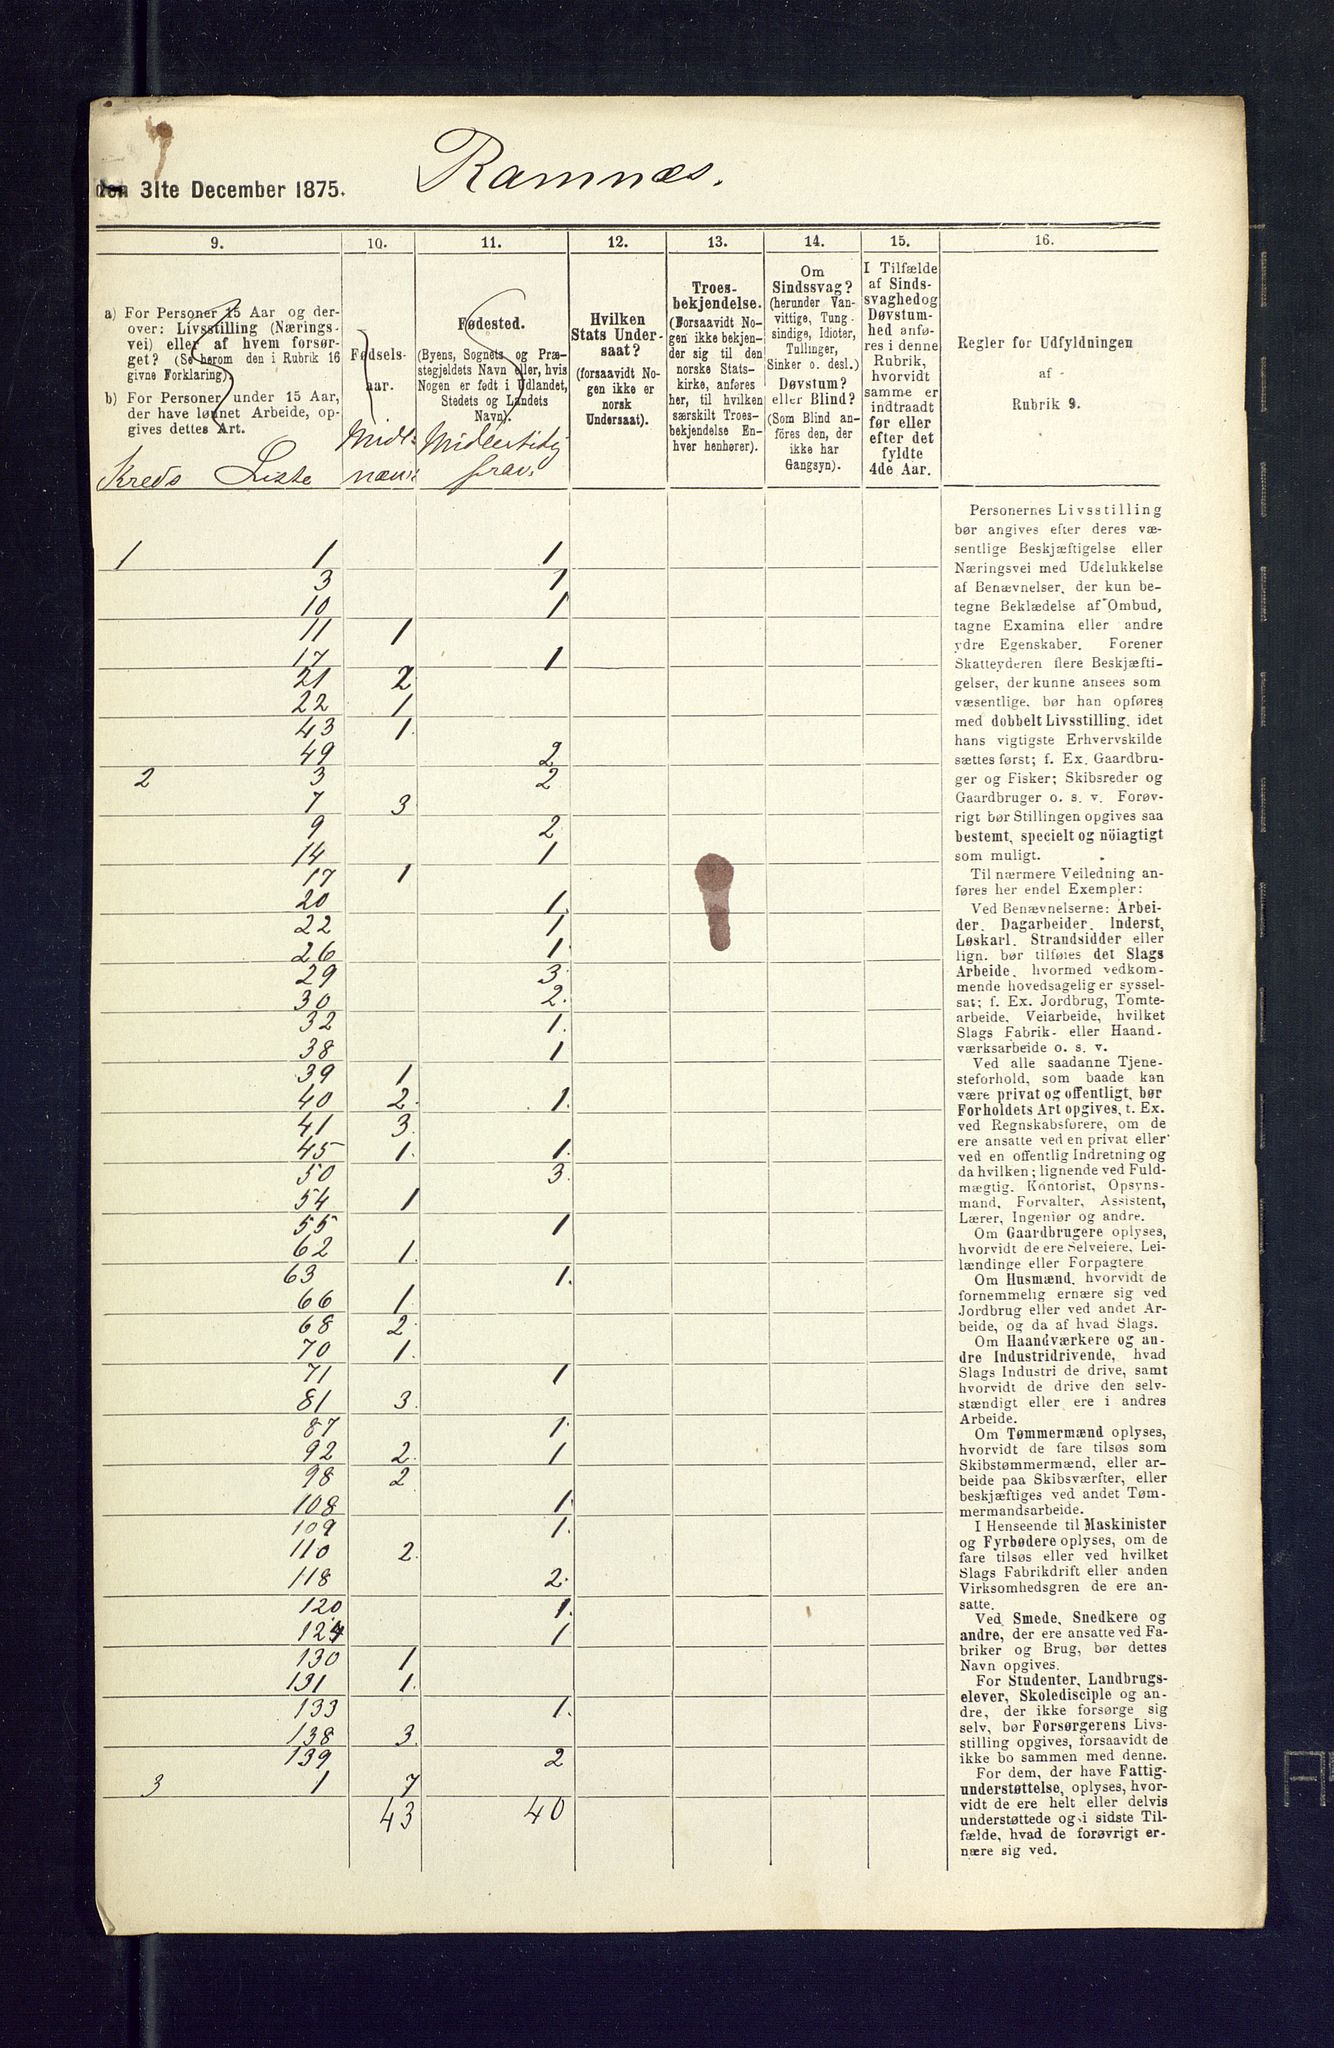 Ramnæs.
den 31te December 1875.
9. 10. 11. 12. 13. 14. 15. 16.
a) For Personer 15 Aar og der-
over: Livsstilling (Nærings-
vei) eller af hvem forsør-
get? (Se herom den i Rubrik 16
givne Forklaring).
b) For Personer under 15 Aar,
der have lønnet Arbeide, op-
gives dettes Art.
Kreds Liste
Fødsels-
aar.
Midl.
nærv.
Fødested.
(Byens, Sognets og Præ-
stegjeldets Navn eller, hvis
Nogen er født i Udlandet,
Stedets og Landets
Navn).
Midlertidig
frav.
Hvilken
Stats Under-
saat?
(forsaavidt No-
gen ikke er
norsk
Undersaat).
Troes-
bekjendelse.
(Forsaavidt No-
gen ikke bekjen-
der sig til den
norske Stats-
kirke, anføres
her, til hvilken
særskilt Troes-
bekjendelse En-
hver henhører).
Om
Sindssvag?
(herunder Van-
vittige, Tung-
sindige, Idioter,
Tullinger,
Sinker o. desl.)
Døvstum?
eller Blind?
(Som Blind an-
føres den, der
ikke har
Gangsyn).
I Tilfælde
af Sinds-
svaghed og
Døvstum-
hed anfø-
res i denne
Rubrik,
hvorvidt
samme er
indtraadt
før eller
efter det
fyldte
4de Aar.
Regler for Udfyldningen
af
Rubrik 9.
1 1 1
3 1
10 1
11 1
17 1
21 2
22 1
43 1.
49 2
2 3 2
7 3
9 2
14 1
17 1
20 1
22 1
26 1
29 3
30 2.
32 1.
38 1
39 1
40 2. 1.
41 3.
45 1. 1.
50 3.
54 1
55 1
62 1.
63 1.
66 1.
68 2.
70 1.
71 1
81 3.
87 1.
92 2. 1
98 2
108 1.
109 1.
110 2.
118 2.
120 1.
124 1
130 1
131 1.
133 1.
138 3.
139 2
3 1 7
43 40
Personernes Livsstilling
bør angives efter deres væ-
sentlige Beskjæftigelse eller
Næringsvei med Udelukkelse
af Benævnelser, der kun be-
tegne Beklædelse af Ombud,
tagne Examina eller andre
ydre Egenskaber. Forener
Skatteyderen flere Beskjæfti-
gelser, der kunne ansees som
væsentlige, bør han opføres
med dobbelt Livsstilling, idet
hans vigtigste Erhvervskilde
sættes først; f. Ex. Gaardbru-
ger og Fisker; Skibsreder og
Gaardbruger o. s. v. Forøv-
rigt bør Stillingen opgives saa
bestemt, specielt og nöiagtigt
som muligt.
Til nærmere Veiledning an-
føres her endel Exempler:
Ved Benævnelserne: Arbei-
der, Dagarbeider, Inderst,
Løskarl, Strandsidder eller
lign. bør tilføies det Slags
Arbeide, hvormed vedkom-
mende hovedsagelig er syssel-
sat; f. Ex. Jordbrug, Tomte-
arbeide, Veiarbeide, hvilket
Slags Fabrik- eller Haand-
værksarbeide o. s. v.
Ved alle saadanne Tjene-
steforhold, som baade kan
være privat og offentligt, bør
Forholdets Art opgives, t. Ex.
ved Regnskabsførere, om de
ere ansatte ved en privat eller
ved en offentlig Indretning og
da hvilken; lignende ved Fuld-
mægtig, Kontorist, Opsyns-
mand, Forvalter, Assistent,
Lærer, Ingeniør og andre.
Om Gaardbrugere oplyses,
hvorvidt de ere Selveiere, Lei-
lændinge eller Forpagtere
Om Husmænd, hvorvidt de
fornemmelig ernære sig ved
Jordbrug eller ved andet Ar-
beide, og da af hvad Slags.
Om Haandværkere og an-
dre Industridrivende, hvad
Slags Industri de drive, samt
hvorvidt de drive den selv-
stændigt eller ere i andres
Arbeide.
Om Tømmermænd oplyses,
hvorvidt de fare tilsøs som
Skibstømmermænd, eller ar-
beide paa Skibsværfter, eller
beskjæftiges ved andet Tøm-
mermandsarbeide.
I Henseende til Maskinister
og Fyrbødere oplyses, om de
fare tilsøs eller ved hvilket
Slags Fabrikdrift eller anden
Virksomhedsgren de ere an-
satte.
Ved Smede, Snedkere og
andre, der ere ansatte ved Fa-
briker og Brug, bør dettes
Navn opgives.
For Studenter, Landbrugs-
elever, Skoledisciple og an-
dre, der ikke forsørge sig
selv, bør Forsørgerens Livs-
stilling opgives, forsaavidt de
ikke bo sammen med denne.
For dem, der have Fattig-
understøttelse, oplyses, hvor-
vidt de ere helt eller delvis
understøttede og i sidste Til-
fælde, hvad de forøvrigt er-
nære sig ved.